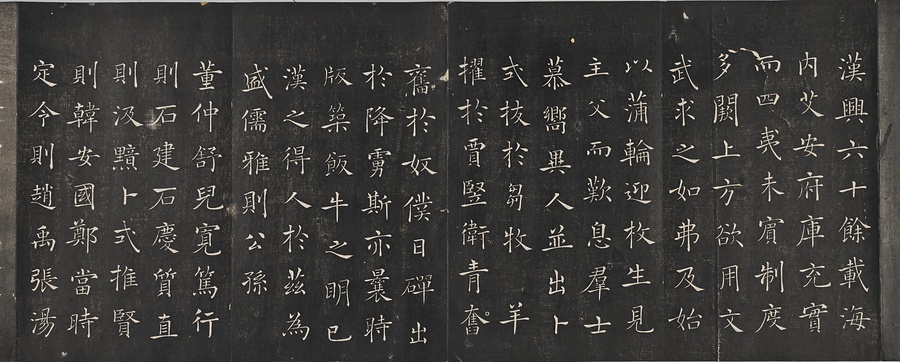 漢興六十餘載海
内艾安府庫充實
而四夷未賓制度
多闕上方欲用文
武求之如弗及始
以蒲輪迎枚生見
主父而歎息羣士
慕嚮異人並出卜
式拔於芻牧 羊
擢於賈豎衛青奮
奮於奴僕日磾出
於降虜斯亦曩時
版築飯牛之明已
漢之得人於茲為
盛儒雅則公孫
董仲舒兒寬篤行
則石建石慶質直
則汲黯卜式推賢
則韓安國鄭當時
定令則趙禹張湯